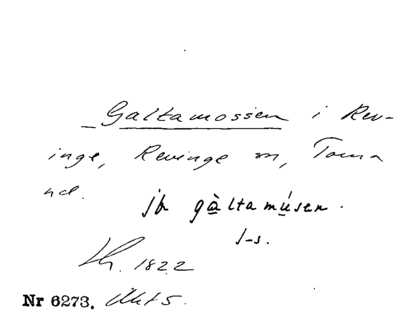 Galtamossen i Rev-
inge, Revinge sn, Torna
hd.
jb gàltamúsen.
l-s.
Lh. 1822
Nr 6273.